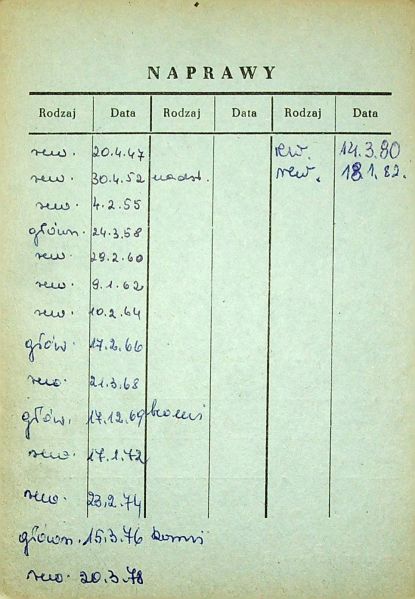 NAPRAWY
Rodzaj Data Rodzaj Data Rodzaj Data
rew. 20.4.47 rew. 14.3.80
rew. 30.4.52 nadst. rew. 18.1.82.
rew. 4.2.55
główn. 24.3.58
rew. 29.2.60
rew. 9.1.62
rew. 10.2.64
głów. 17.2.66
rew. 21.3.68
głów. 17.12.69
rew. 17.1.72
rew. 23.2.74
główn. 15.3.76
rew. 20.3.78